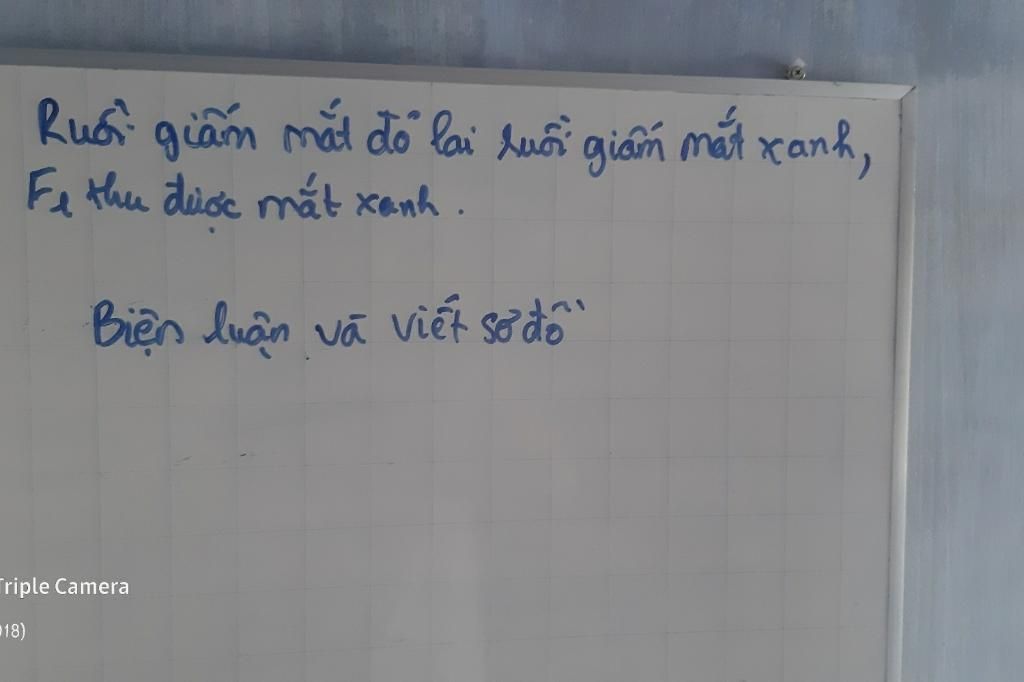 Ruồi giấm mắt đỏ lai ruồi giấm mắt xanh,
F1 thu được mắt xanh.
Biện luận và viết sơ đồ
Triple Camera
018)